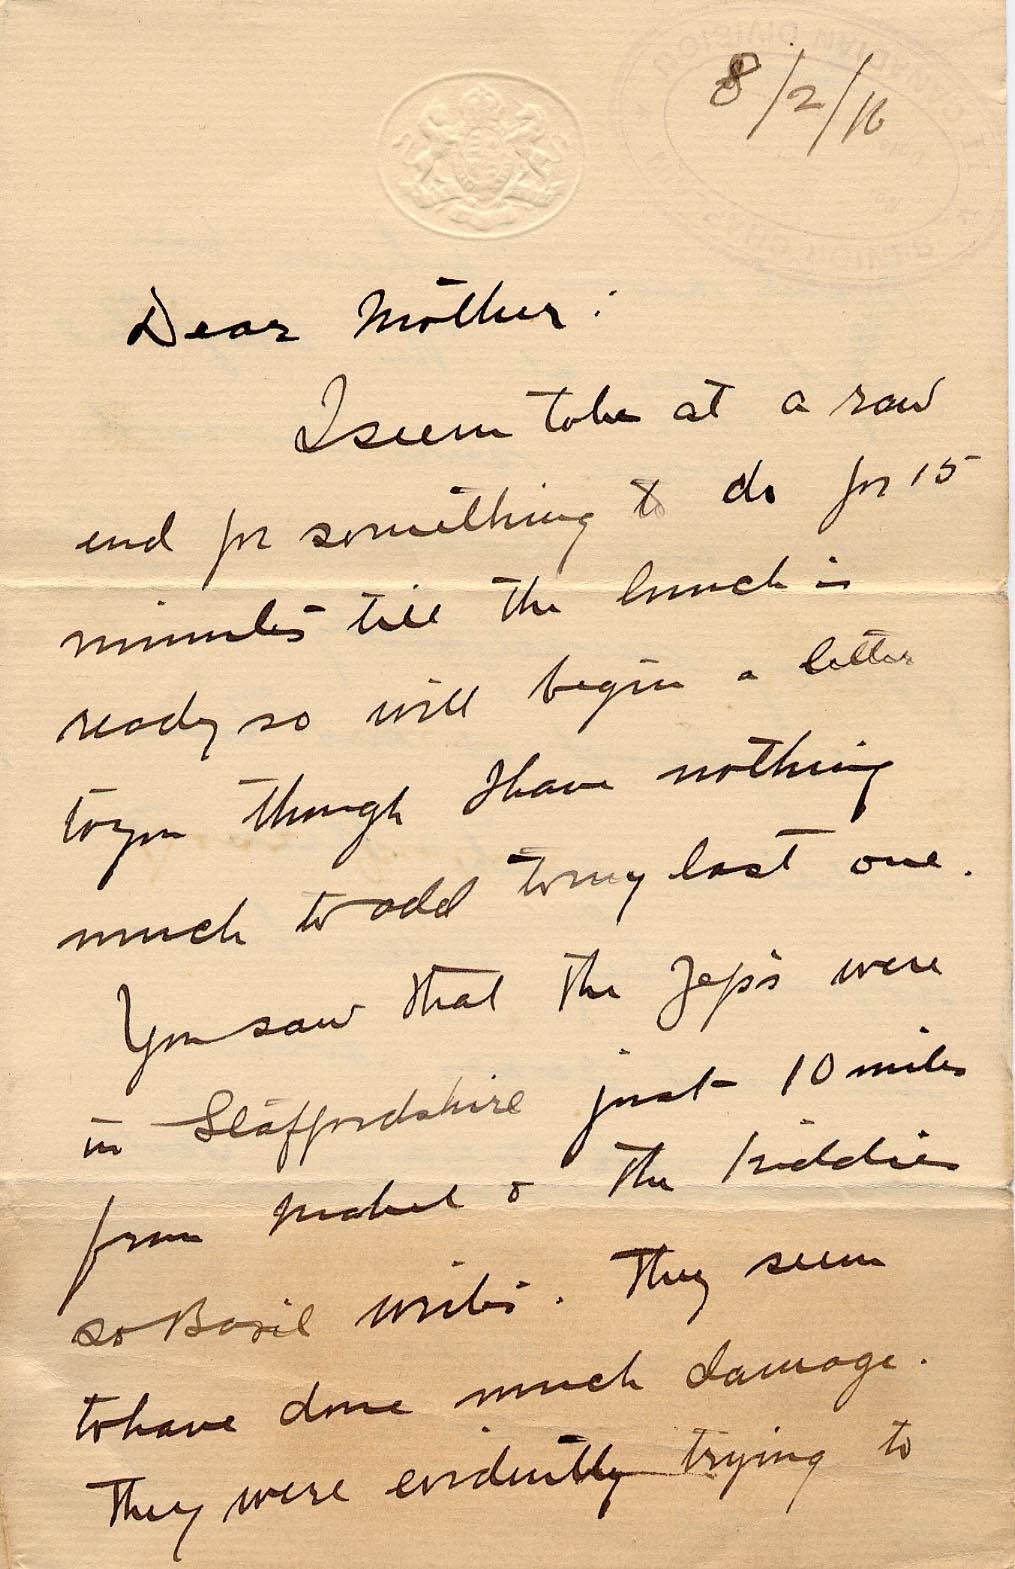 CANADIAN DIVISION
SENIOR CHAPLAIN
8/2/16
Dear Mother:
I seem to be at a raw
end for something to do for 15
minutes till the lunch is
ready so will begin a letter
to you though I have nothing
much to add to my last one.
You saw that the Zeps were
in Staffordshire just 10 miles
from Mabel & the kiddies
so Basil writes. They seem
to have done much damage.
They were evidently trying to